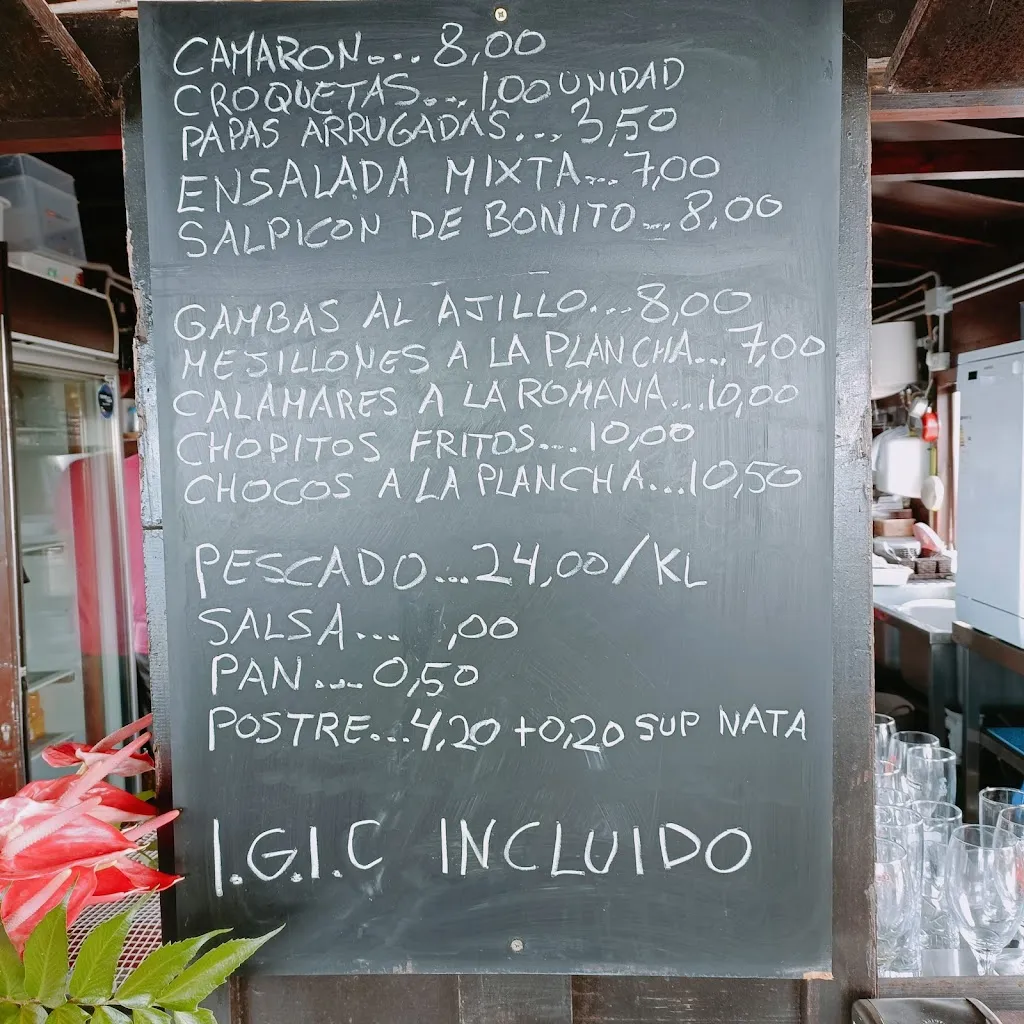 CAMARON... 8,00
CROQUETAS... 1,00 UNIDAD
PAPAS ARRUGADAS... 3,50
ENSALADA MIXTA... 7,00
SALPICON DE BONITO... 8,00
GAMBAS AL AJILLO... 8,00
MEJILLONES A LA PLANCHA... 7,00
CALAMARES A LA ROMANA... 10,00
CHOPITOS FRITOS... 10,00
CHOCOS A LA PLANCHA... 10,50
PESCADO... 24,00/KL
SALSA... ,00
PAN... 0,50
POSTRE... 4,20 +0,20 SUP NATA
I.G.I.C INCLUIDO